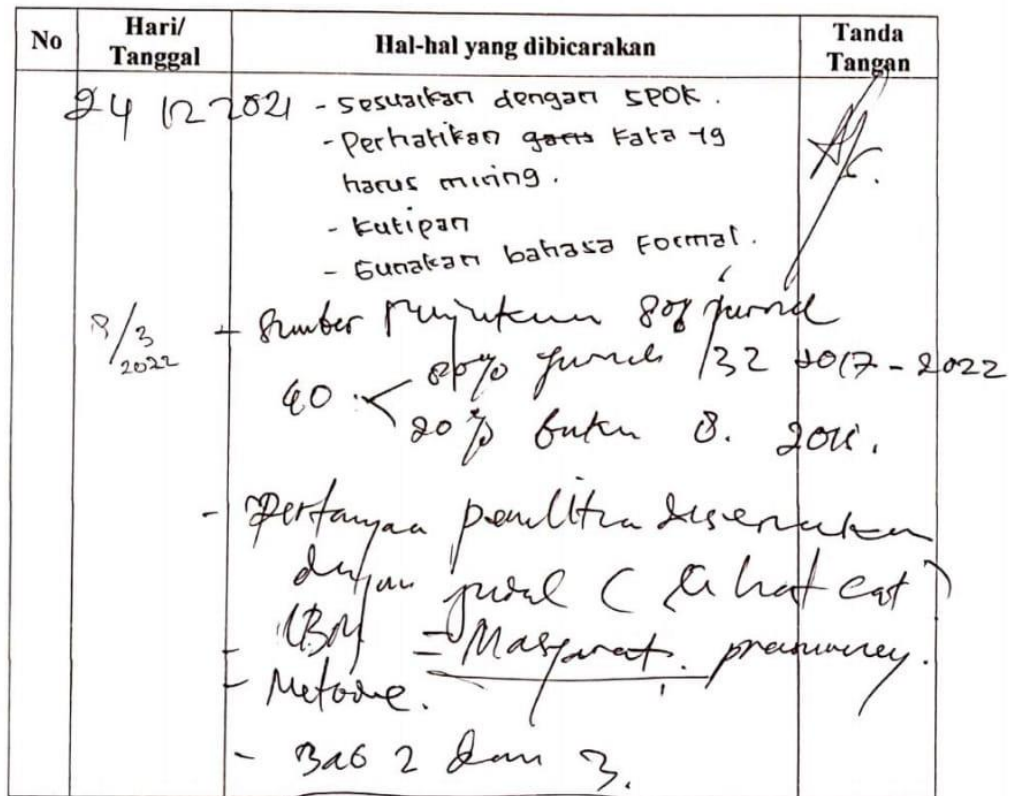 No Hari/ Tanggal Hal-hal yang dibicarakan Tanda Tangan
24 12 2021 - Sesuaikan dengan SPOK.
- Perhatikan garis kata yg
harus miring.
- Kutipan
- Gunakan bahasa Formal.
8/3 2022 - Sumber rujukan 80% jurnal
40 < 80% jurnal /32 2017-2022
20% buku 8.
- Pertanyaan penelitian disesuaikan
dengan judul ( lihat cat )
- LBM = Masyarakat.
- Metode.
- Bab 2 dan 3.